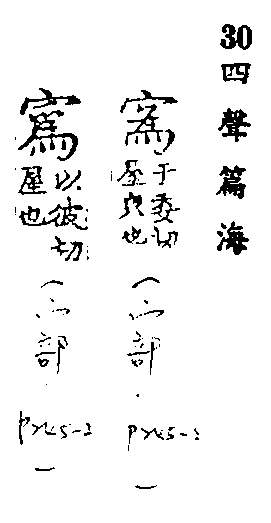 30 四聲篇海
寪
于委切
屋穴也
(宀部.
寪
以彼切
屋也
(宀部.